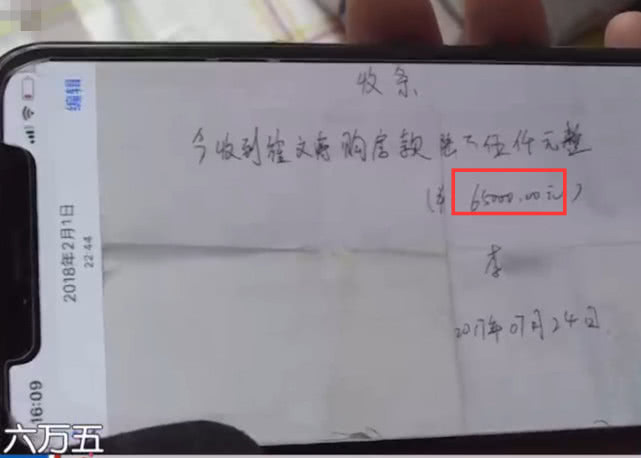 收条
今收到崔文 购房款陆万伍仟元整
65000.00元)
李
2017年07月24日
编辑
2018年2月1日
22:44
16:09
六万五